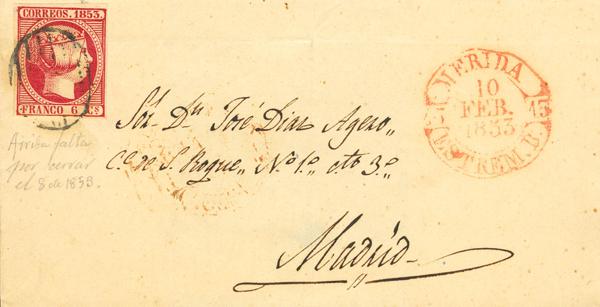 CORREOS. 1853.
FRANCO 6 Cs
MERIDA
10
FEB.
1853
ESTREM. B.
15
Sor. Dn. José Diaz Agero,,
Ce. de S. Roque,, No. 1o. cto. 3o.
Madrid
Arriba falta
por cerrar
el 8 de 1853.